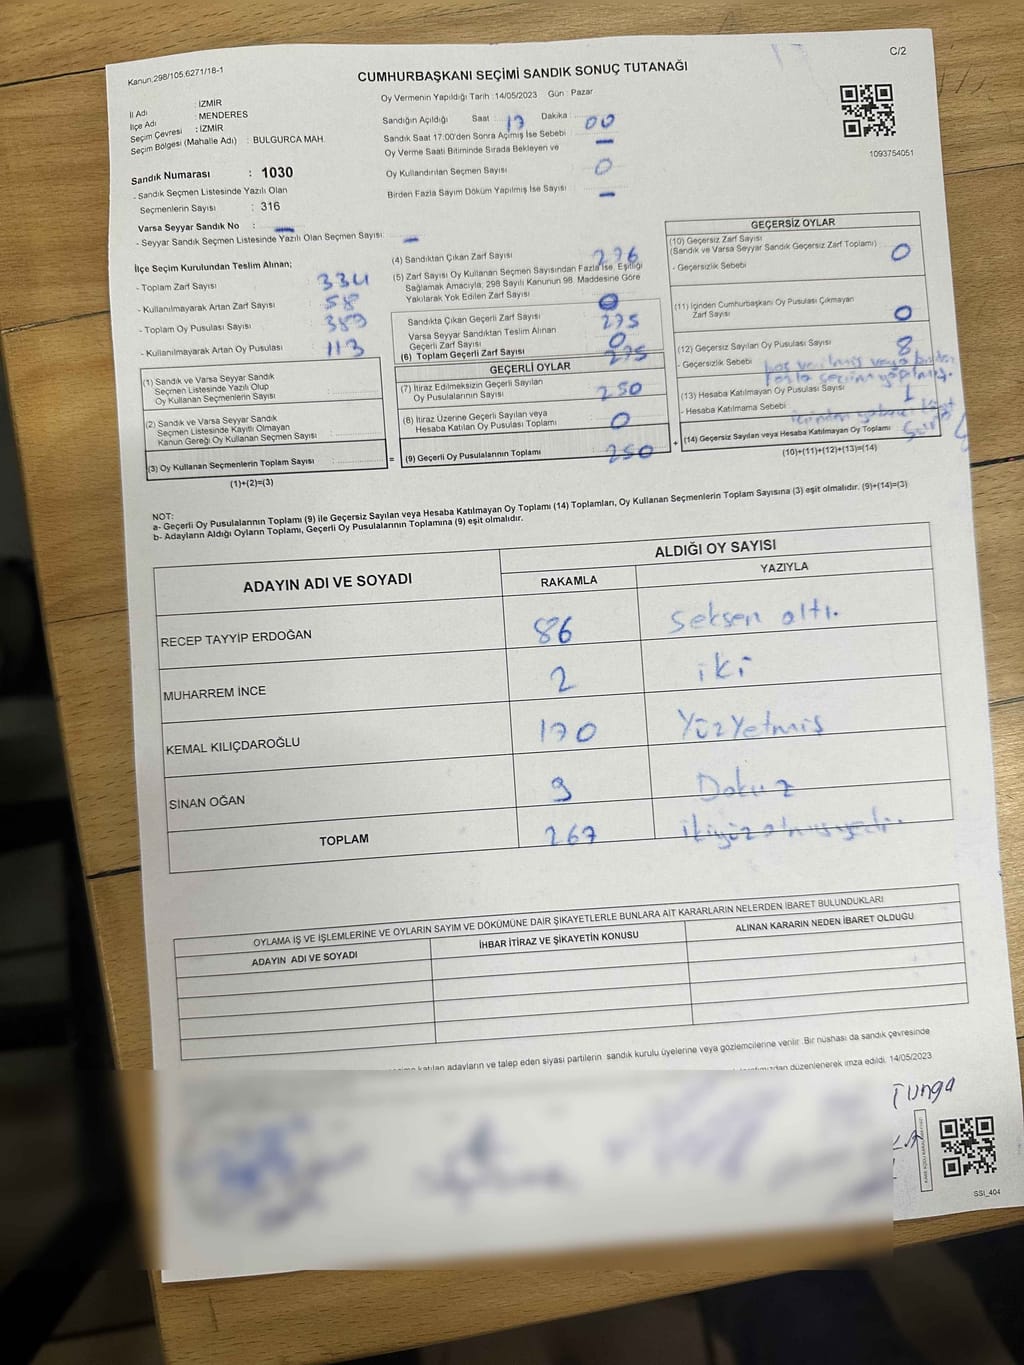 Kanun.298/105.6271/18-1
C/2
CUMHURBAŞKANI SEÇİMİ SANDIK SONUÇ TUTANAĞI
İl Adı : İZMİR
İlçe Adı : MENDERES
Seçim Çevresi : İZMİR
Seçim Bölgesi (Mahalle Adı) : BULGURCA MAH.
Sandık Numarası : 1030
- Sandık Seçmen Listesinde Yazılı Olan
Seçmenlerin Sayısı : 316
Varsa Seyyar Sandık No : —
- Seyyar Sandık Seçmen Listesinde Yazılı Olan Seçmen Sayısı: —
Oy Vermenin Yapıldığı Tarih : 14/05/2023 Gün : Pazar
Sandığın Açıldığı Saat : 17 Dakika : 00
Sandık Saat 17:00'den Sonra Açılmış İse Sebebi : —
Oy Verme Saati Bitiminde Sırada Bekleyen ve
Oy Kullandırılan Seçmen Sayısı : 0
Birden Fazla Sayım Döküm Yapılmış İse Sayısı : —
1093754051
İlçe Seçim Kurulundan Teslim Alınan;
- Toplam Zarf Sayısı : 334
- Kullanılmayarak Artan Zarf Sayısı : 58
- Toplam Oy Pusulası Sayısı :
- Kullanılmayarak Artan Oy Pusulası : 113
(1) Sandık ve Varsa Seyyar Sandık
Seçmen Listesinde Yazılı Olup
Oy Kullanan Seçmenlerin Sayısı :
(2) Sandık ve Varsa Seyyar Sandık
Seçmen Listesinde Kayıtlı Olmayan
Kanun Gereği Oy Kullanan Seçmen Sayısı :
(3) Oy Kullanan Seçmenlerin Toplam Sayısı :
(1)+(2)=(3)
(4) Sandıktan Çıkan Zarf Sayısı : 276
(5) Zarf Sayısı Oy Kullanan Seçmen Sayısından Fazla İse, Eşitliği
Sağlamak Amacıyla; 298 Sayılı Kanunun 98. Maddesine Göre
Yakılarak Yok Edilen Zarf Sayısı : 0
Sandıkta Çıkan Geçerli Zarf Sayısı : 275
Varsa Seyyar Sandıktan Teslim Alınan
Geçerli Zarf Sayısı : 0
(6) Toplam Geçerli Zarf Sayısı : 275
GEÇERLİ OYLAR
(7) İtiraz Edilmeksizin Geçerli Sayılan
Oy Pusulasının Sayısı : 250
(8) İtiraz Üzerine Geçerli Sayılan veya
Hesaba Katılan Oy Pusulası Toplamı : 0
= (9) Geçerli Oy Pusulalarının Toplamı : 250 +
GEÇERSİZ OYLAR
(10) Geçersiz Zarf Sayısı
(Sandık ve Varsa Seyyar Sandık Geçersiz Zarf Toplamı) : 0
- Geçersizlik Sebebi
(11) İçinden Cumhurbaşkanı Oy Pusulası Çıkmayan
Zarf Sayısı : 0
(12) Geçersiz Sayılan Oy Pusulası Sayısı : 8
- Geçersizlik Sebebi : boş verilmiş veya birden
fazla seçim yapılmış.
(13) Hesaba Katılmayan Oy Pusulası Sayısı : 1
- Hesaba Katılmama Sebebi :
(14) Geçersiz Sayılan veya Hesaba Katılmayan Oy Toplamı :
(10)+(11)+(12)+(13)=(14)
NOT:
a- Geçerli Oy Pusulalarının Toplamı (9) ile Geçersiz Sayılan veya Hesaba Katılmayan Oy Toplamı (14) Toplamları, Oy Kullanan Seçmenlerin Toplam Sayısına (3) eşit olmalıdır. (9)+(14)=(3)
b- Adayların Aldığı Oyların Toplamı, Geçerli Oy Pusulalarının Toplamına (9) eşit olmalıdır.
ADAYIN ADI VE SOYADI
ALDIĞI OY SAYISI
RAKAMLA YAZIYLA
RECEP TAYYİP ERDOĞAN 86 seksen altı.
MUHARREM İNCE 2 iki
KEMAL KILIÇDAROĞLU 170 Yüzyetmiş
SİNAN OĞAN 9 Dokuz
TOPLAM 267 ikiyüzatmışyedi.
OYLAMA İŞ VE İŞLEMLERİNE VE OYLARIN SAYIM VE DÖKÜMÜNE DAİR ŞİKAYETLERLE BUNLARA AİT KARARLARIN NELERDEN İBARET BULUNDUKLARI
ADAYIN ADI VE SOYADI İHBAR İTİRAZ VE ŞİKAYETİN KONUSU ALINAN KARARIN NEDEN İBARET OLDUĞU
katılan adayların ve talep eden siyasi partilerin sandık kurulu üyelerine veya gözlemcilerine verilir .Bir nüshası da sandık çevresinde
düzenlenerek imza edildi. 14/05/2023
Tunga
SSİ_404